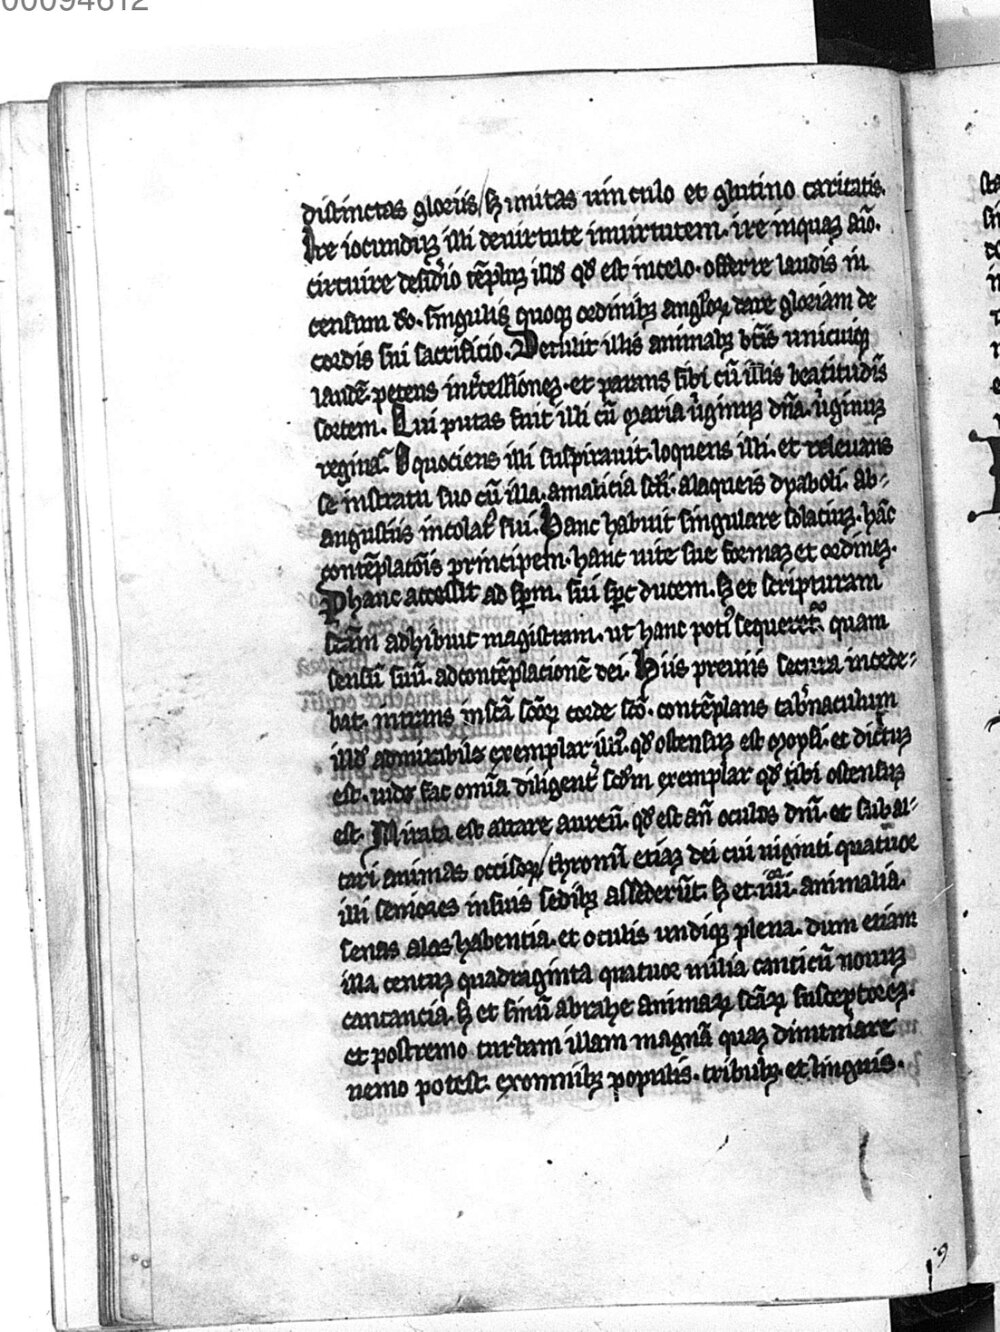 00094612
distinctas gloriis / sꝫ unitas uinculo et glutino caritatis.
Ire iocundiꝫ illi deuirtute inuirtutem. ire inquaꝫ aīo.
circuire desid'io tēpluꝫ illd' qd' est incelo. offerre laudis in
censum do. singulis quoqꝫ ordinibꝫ angloꝝ dare gloriam de
cordis sui sacrificio. Detulit illis animabꝫ btīs unicuiqꝫ
laudē. petens int'cessioneꝫ. et parans sibi cū illis beatitudīs
sortem. Qui putas fuit illi cū maria u'ginuꝫ dn̄a. u'ginuꝫ
regina. O quociens illi suspirauit. loquens illi. et releuans
se instratu suo cū illa. amalicia scl'i. alaqueis dyaboli. ab-
angustiis incolat' sui. Hanc habuit singulare solaciuꝫ. hāc
contēplatōis principem. hanc uite sue formaꝫ et ordineꝫ.
Phanc accessit ad spm. sui spc ducem. Sꝫ et scripturam
scām adhibuit magistram. ut hanc poti' sequeret' quam
sensū suū. adcontēplacionē dei. Hiis preuiis secura incede-
bat. intrans in scā scōꝝ corde scō. contēplans tab'naculum
illd' admirabile exemplar qd' ostensuꝫ est moysi. et dictuꝫ
est. uide fac omīa diligent' scd'm exemplar qd' tibi ostensuꝫ
est. Mirata est altare aureū. qd' est an̄ oculos dn̄i. et sub al-
tari animas occisoꝝ / thronū etiaꝫ dei cui uiginti quatuor
illi seniores insuis sedibꝫ assederūt. sꝫ et .iiii. animalia.
senas alas habentia. et oculis undiqꝫ plena. dum etiam
illa centuꝫ quadraginta quatuor milia canticū nouuꝫ
cantancia. sꝫ et sinū abrahe animaꝝ scāꝝ susceptoreꝫ.
et postremo turbam illam magnā quaꝫ dinumerare
nemo potest. exomnibꝫ populis. tribubꝫ. et linguis.